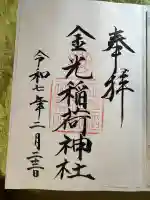 奉拝
金光稲荷神社
令和七年二月二三日